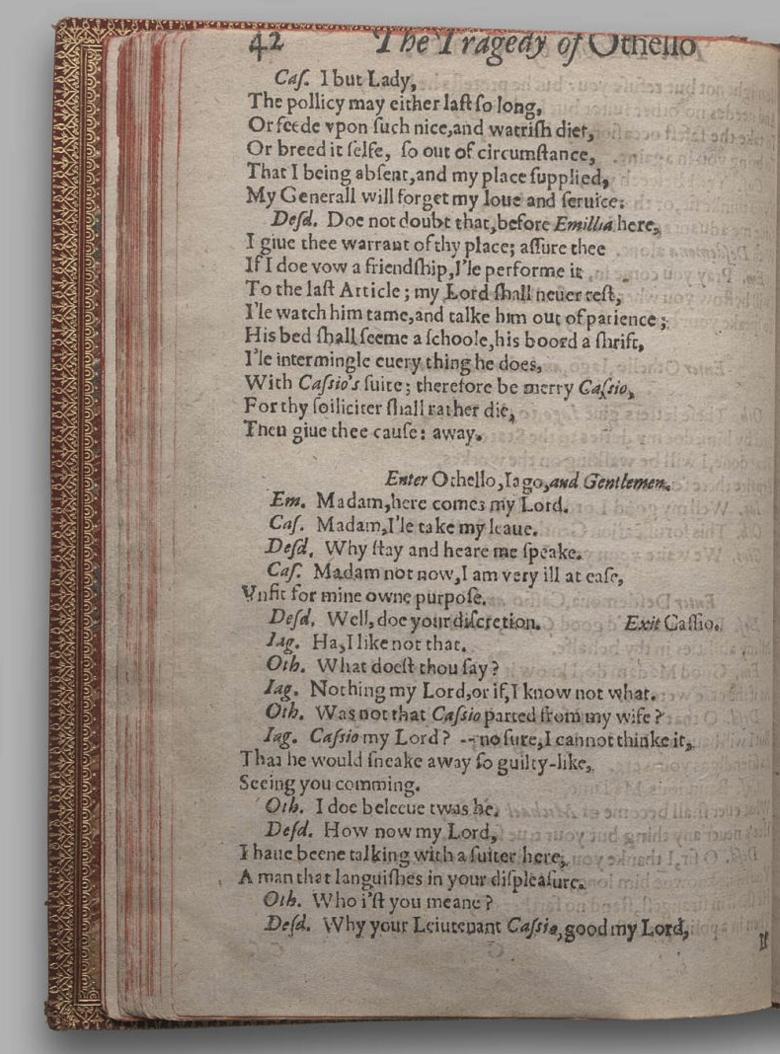 42 The Tragedy of Othello
Caſ. I but Lady,
The pollicy may either laſt ſo long,
Or feede vpon ſuch nice, and watriſh diet,
Or breed it ſelfe, ſo out of circumſtance,
That I being abſent, and my place ſupplied,
My Generall will forget my loue and ſeruice:
Deſd. Doe not doubt that, before Emillia here,
I giue thee warrant of thy place; aſſure thee
If I doe vow a friendſhip, I'le performe it
To the laſt Article; my Lord ſhall neuer reſt,
I'le watch him tame, and talke him out of patience;
His bed ſhall ſeeme a ſchoole, his boord a ſhrift,
I'le intermingle euery thing he does,
With Caſsio's ſuite; therefore be merry Caſsio,
For thy ſoiliciter ſhall rather die,
Then giue thee cauſe: away.
Enter Othello, Iago, and Gentlemen.
Em. Madam, here comes my Lord.
Caſ. Madam, I'le take my leaue.
Deſd. Why ſtay and heare me ſpeake.
Caſ. Madam not now, I am very ill at eaſe,
Vnfit for mine owne purpoſe.
Deſd. Well, doe your diſcretion. Exit Caſſio.
Iag. Ha, I like not that.
Oth. What doeſt thou ſay?
Iag. Nothing my Lord, or if, I know not what.
Oth. Was not that Caſsio parted from my wife?
Iag. Caſsio my Lord? -- no ſure, I cannot thinke it,
That he would ſneake away ſo guilty-like,
Seeing you comming.
Oth. I doe beleeue twas he.
Deſd. How now my Lord,
I haue beene talking with a ſuiter here,
A man that languiſhes in your diſpleaſure.
Oth. Who i'ſt you meane?
Deſd. Why your Leiutenant Caſsio, good my Lord,
If